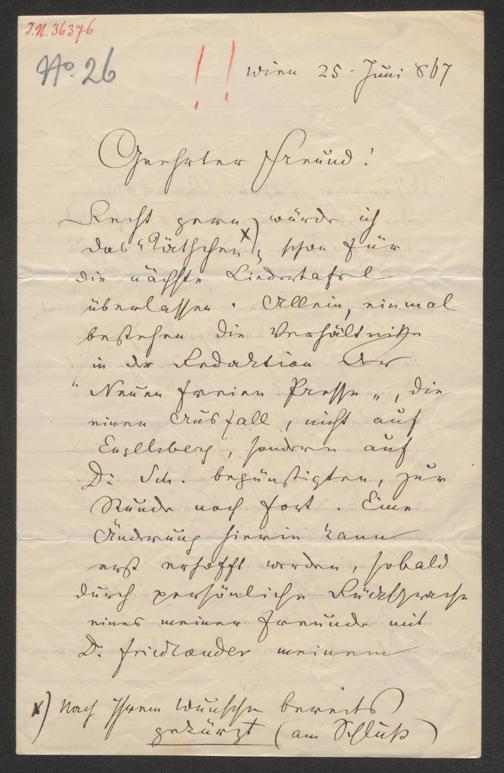 J.N. 36376
No. 26
!!
Wien 25. Juni 867
Geehrter Freund!
Recht gern würde ich
das "Räthchen" x) schon für
die nächste Liedertafel
überlassen. Allein, einmal
bestehen die Verhältniße
in der Redaktion der
"Neuen freien Presse", die
einen Ausfall, nicht auf
Engelsberg, sondern auf
Dr. Sch. begünstigten, zur
Stunde noch fort. Eine
Änderung hierin kann
erst erhofft werden, sobald
durch persönliche Rücksprache
eines meiner Freunde mit
Dr. Friedlaender meinem
x) Nach Ihrem Wunsche bereits
gekürzt (am Schluß)